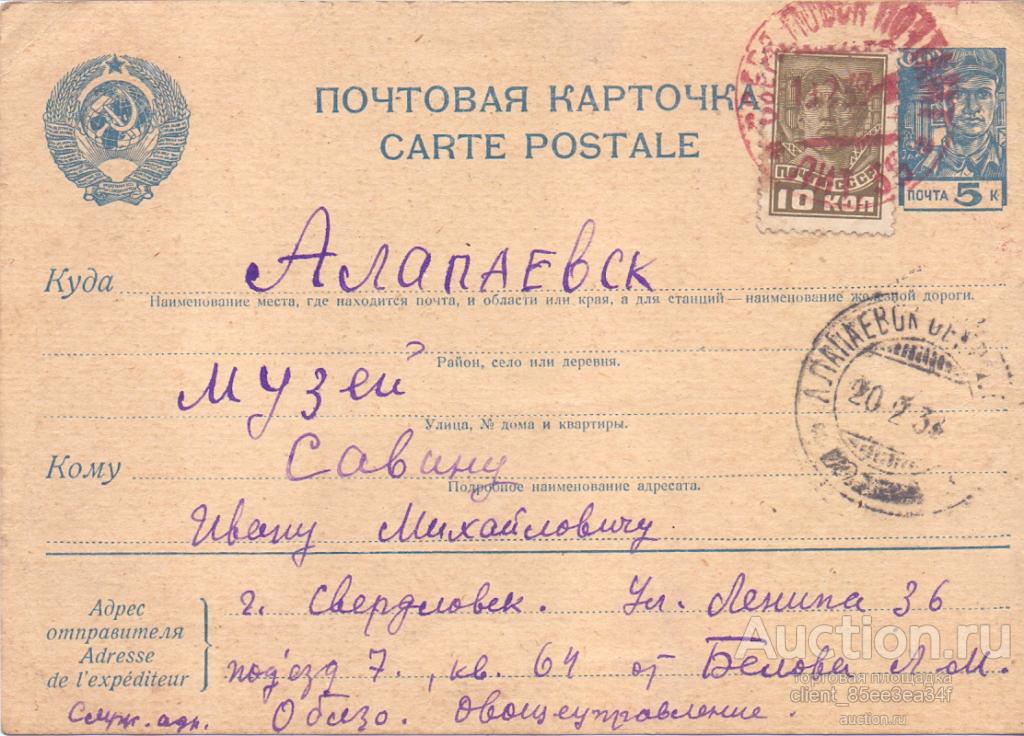 ПОЧТОВАЯ КАРТОЧКА
CARTE POSTALE
ПОЧТА СССР
10 КОП
ПОЧТА 5 К
Куда Алапаевск
Наименование места, где находится почта, и области или края, а для станций — наименование железной дороги.
Район, село или деревня.
Музей
Улица, № дома и квартиры.
Кому Савину
Подробное наименование адресата.
Ивану Михайловичу
АЛАПАЕВСК
20 2 3
Адрес отправителя
Adresse de l'expéditeur
г. Свердловск. Ул. Ленина 36
под'езд 7., кв. 64 от Белова Л. М.
Служ. адр. Облзо. Овощеуправление.
Auction.ru
торговая площадка
client_85ee3ea34f
auction.ru